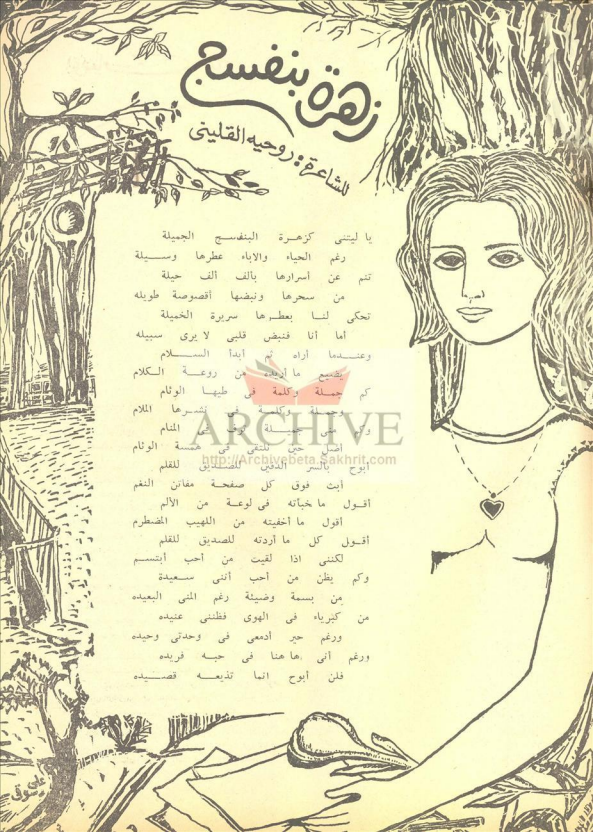 زهرة بنفسج
للشاعرة : روحيه القلينى
يا ليتنى كزهرة البنفسج الجميلة
رغم الحياء والاباء عطرها وسيلة
تنم عن أسرارها بألف ألف حيلة
من سحرها ونبضها أقصوصة طويله
تحكى لنا بعطرها سريرة الخميلة
أما أنا فنبض قلبى لا يرى سبيله
وعندما أراه ثم أبدأ السلام
يضيع ما أريده من روعة الكلام
كم جملة وكلمة فى طيها الوئام
وجملة وكلمة فى نشرها الملام
جملة فى المنام
نلتقى فى الوئام
أبوح بالسر الدفين للصديق للقلم
أبث فوق كل صفحة مفاتن النغم
أقول ما خبأته فى لوعة من الألم
أقول ما أخفيته من اللهيب المضطرم
أقول كل ما أردته للصديق للقلم
لكننى اذا لقيت من أحب أبتسم
وكم يظن من أحب أننى سعيدة
من بسمة وضيئة رغم المنى البعيده
من كبرياء فى الهوى فظننى عنيده
ورغم حبر أدمعى فى وحدتى وحيده
ورغم أنى هاهنا فى حبه فريده
فلن أبوح انما تذيعه قصيده
ARCHIVE
http://Archivebeta.Sakhrit.com